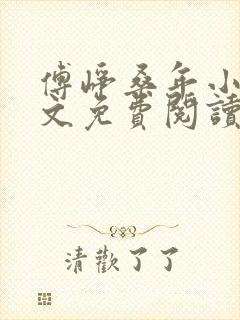 傅崢桑年小
文免費閱讀
清歡了了